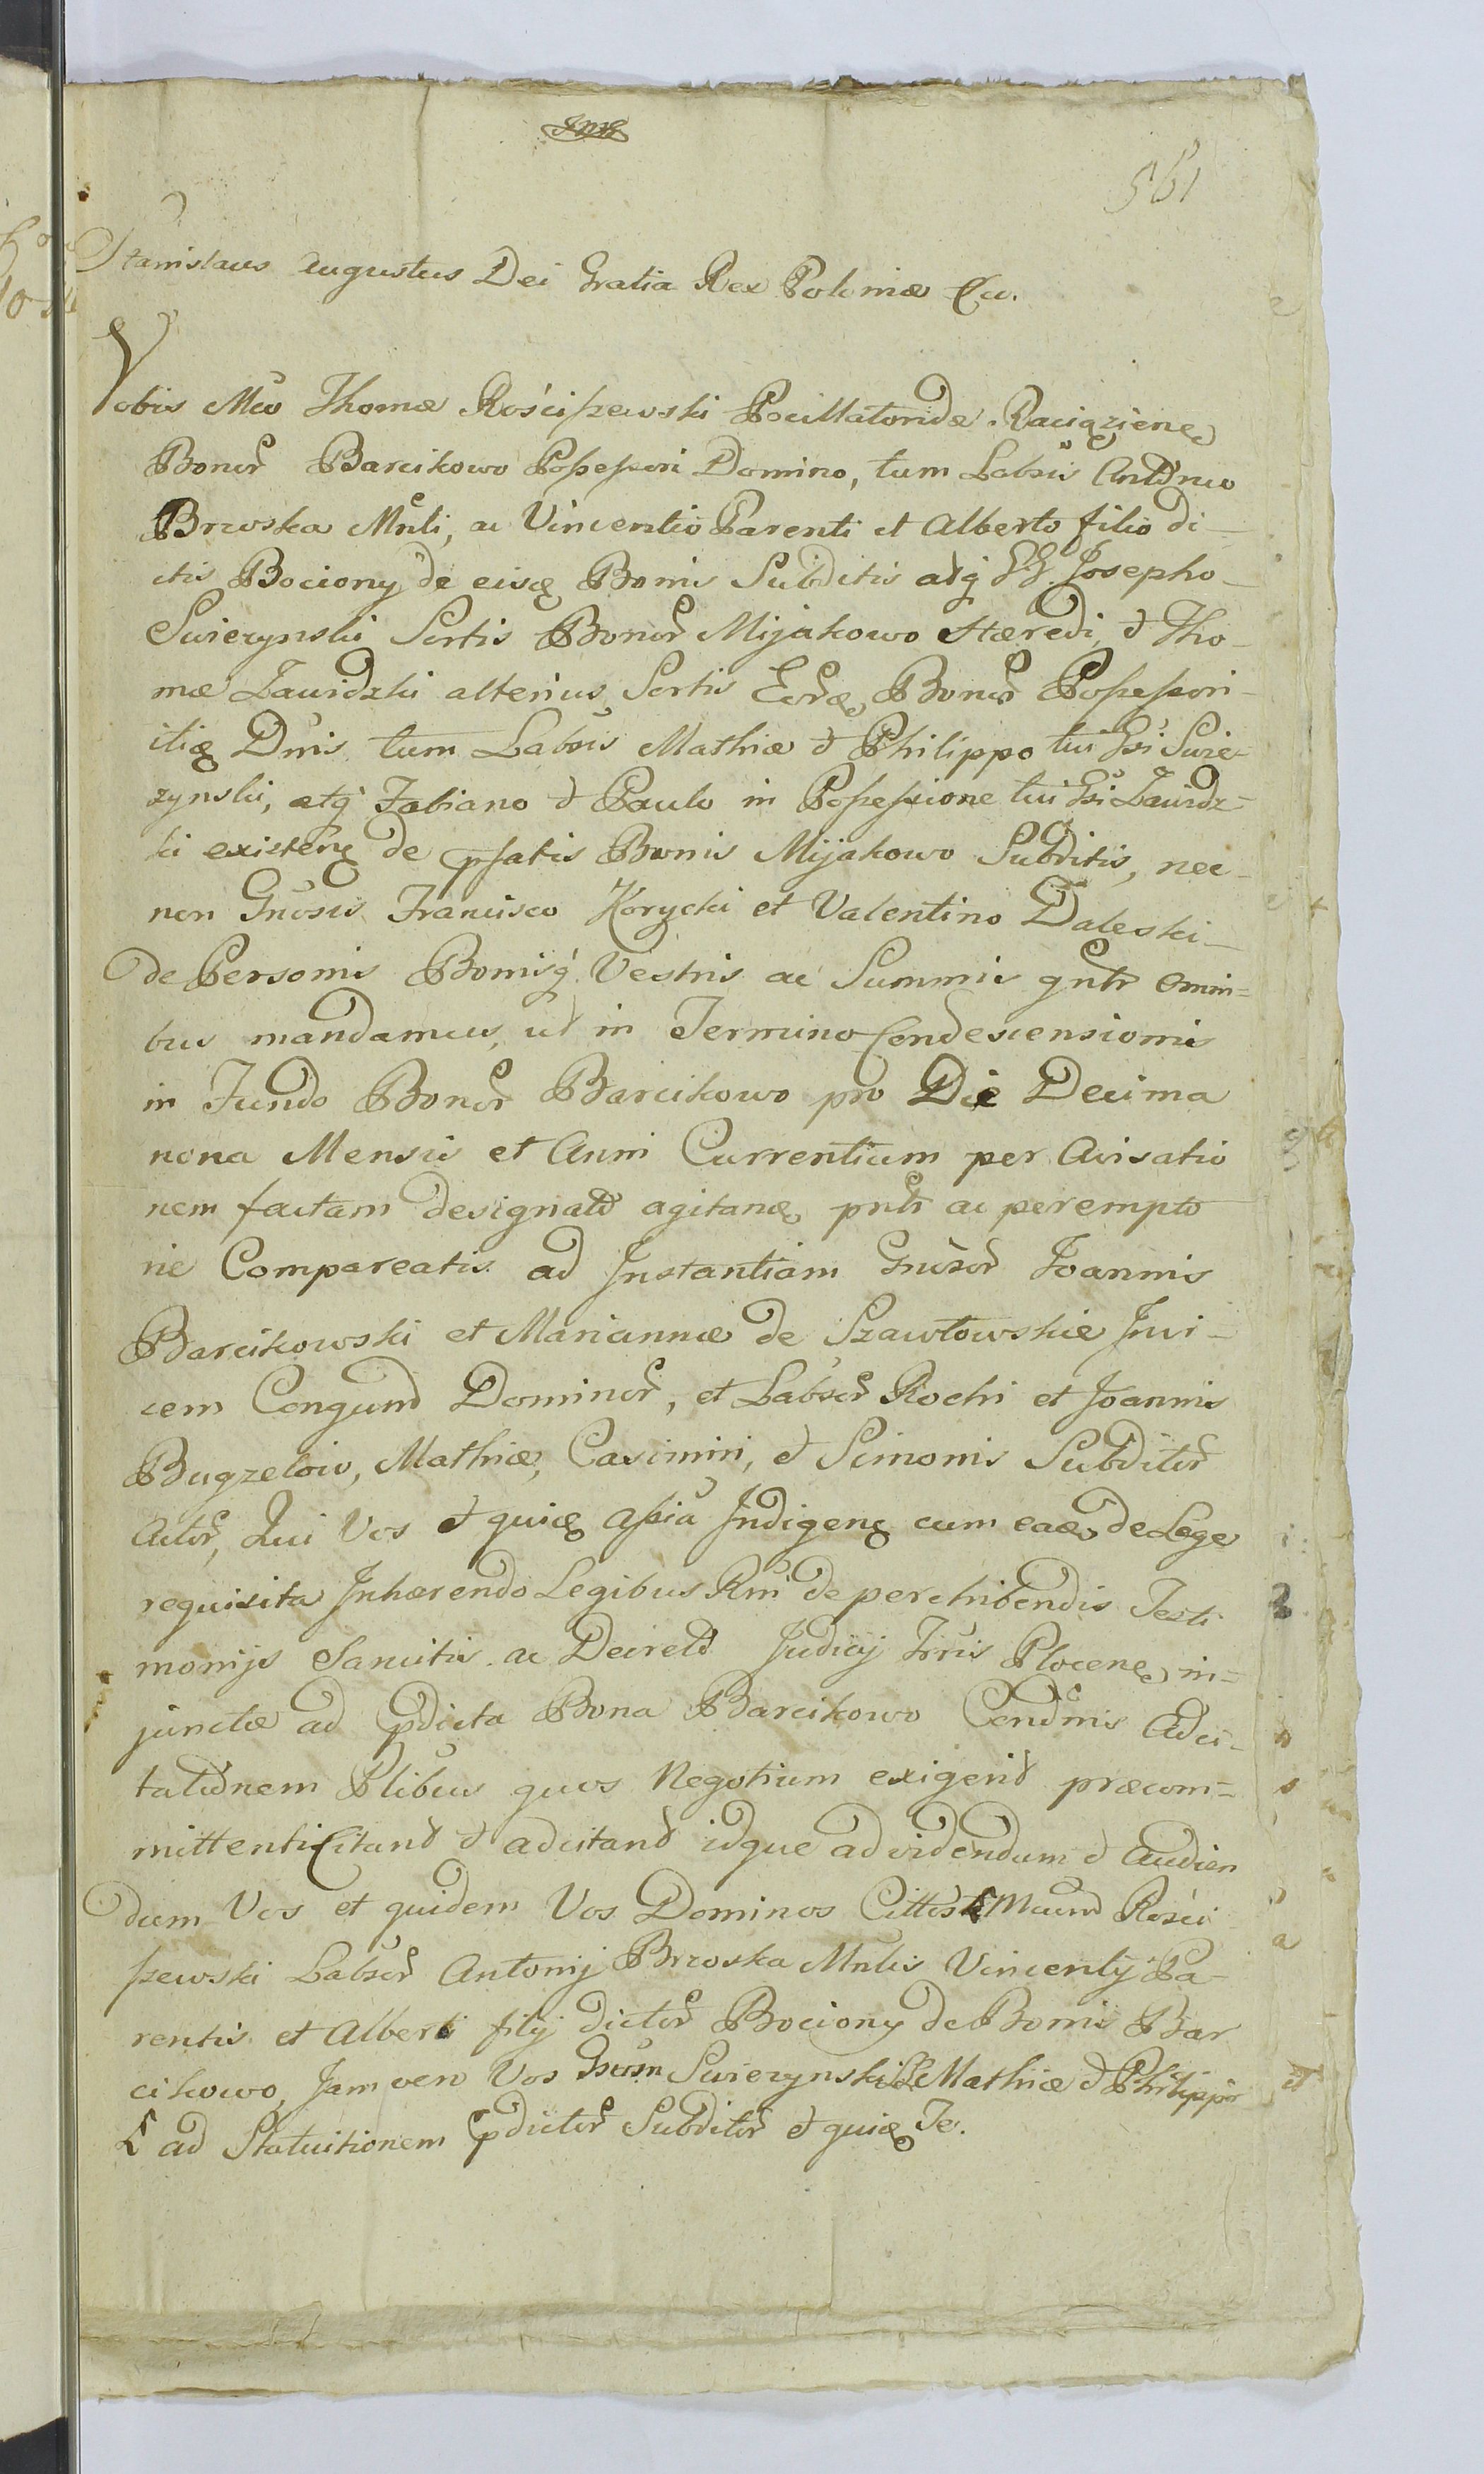 561
Stanislaus Augustus Dei Gratia Rex Poloniæ &c.
Vobis Mco Thomæ Rościszewski Pocillatoridæ Raciązieneσ
Bonor Barcikowo Possessori Domino, tum Labsis Antonio
Brzoska Mnli, ac Vincentio Parenti et Alberto filio di-
ctis Bociony de eisq Bonis Subditis atq GG Josepho
Swierzynski Sortis Bonor Mijakowo Hæredi, et Tho-
mæ Zawidzki alterius Sortis Eorq Bonor Possessori-
itiq Dnis tum Labsis Mathiæ et Philippo tui Gsi Swie-
rzynski, atq Fabiano et Paulo in Possessione tui Gsi Zawidz-
ki existenq de pfatis Bonis Mijakowo Subditis, nec-
non Gnosis Francisco Korycki et Valentino Daleski
de Personis Bonisq Vestris ac Summis gnlr omni-
bus mandamus, ut in Termino Condescensionis
in Fundo Bonor Barcikowo pro Die Decima
nona Mensis et Anni Currentium per Avisatio
nem factam designato agitanq pnlr ac perempto
rie Compareatis ad Instantiam Gnosor Joannis
Barcikowski et Mariannæ de Szawłowskie Invi-
cem Congund Dominor, et Labsor Rochi et Joannis
Bugzelow, Mathiæ, Casimiri, et Simonis Subditor
Actor, Qui Vos et quiq Assia Indigenq cum eaq de Lege
requisita Inhærendo Legibus Rni de perhibendis Testi
monijs Sancitis ac Decreto Judicij Trris Ploceneσ in-
junctæ ad pdicta Bona Barcikowo Condnis Adci-
tationem Plibus quos Negotium exigerit præcom-
mittenti Citand et adcitand idque ad videndum et Audien
dum Vos et quidem Vos Dominos Cittos Mcum Rości
szewski Labsor Antonij Brzoska Mnlis Vincentij Pa-
rentis et Alberti filij dictor Bociony de Bonis Bar
cikowo, Jam vero Vos Gsum Swierzynski Mathiæ et Philippi
ad Statuitionem pdictor Subditor et quiq Te.